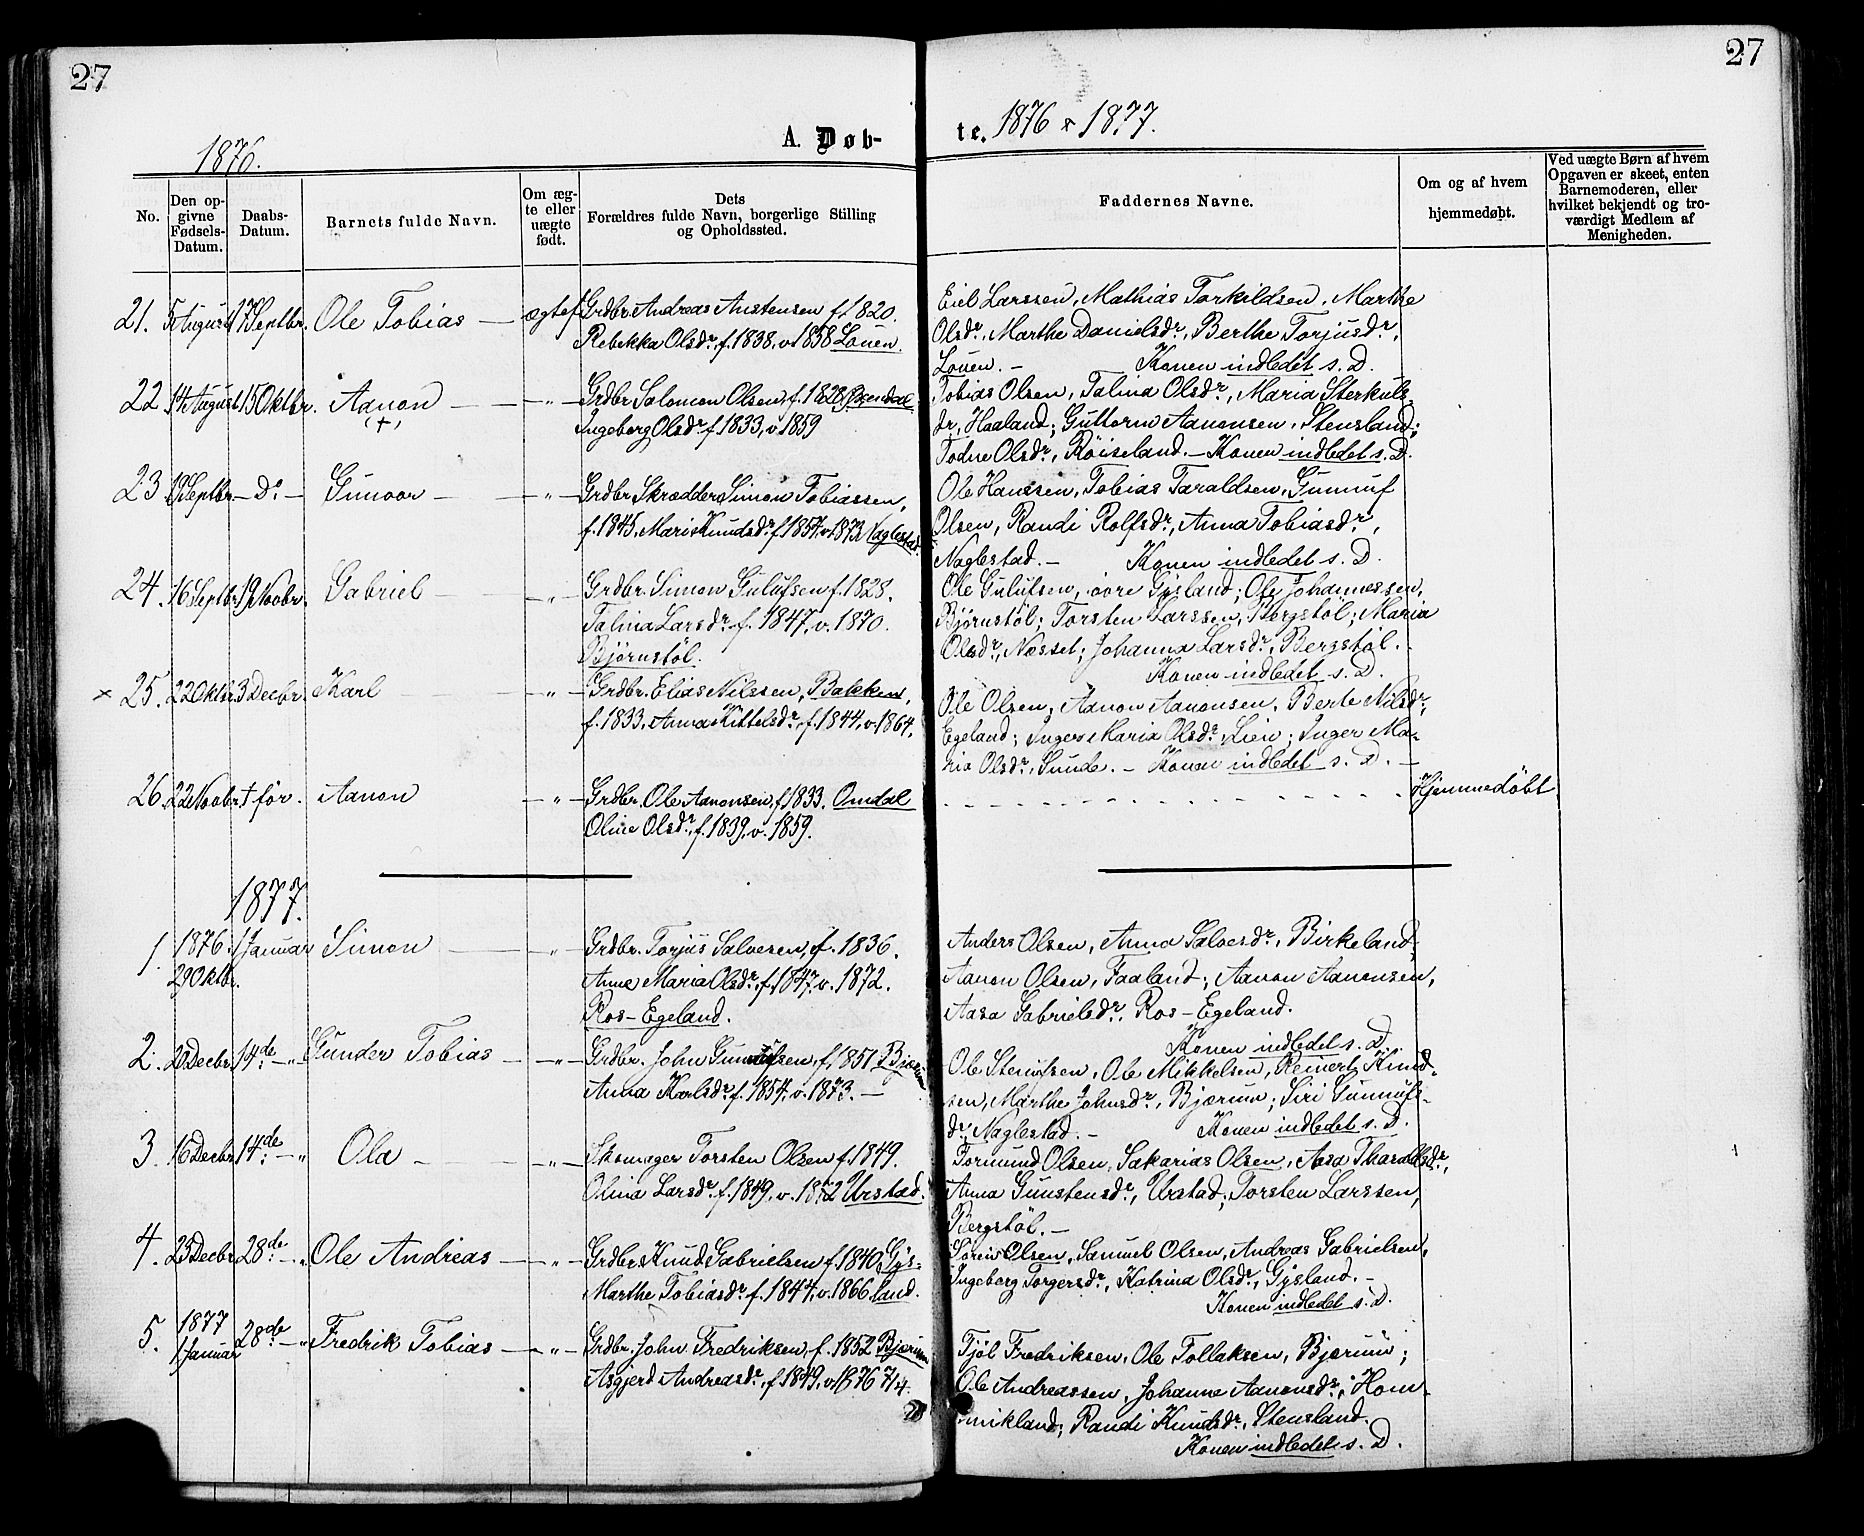 27
27
1876.
A. Døb-
te. 1876 & 1877.
No.
Den op-
givne
Fødsels-
Datum.
Daabs-
Datum.
Barnets fulde Navn.
Om æg-
te eller
uægte
født.
Dets
Forældres fulde Navn, borgerlige Stilling
og Opholdssted.
Faddernes Navne.
Om og af hvem
hjemmedøbt.
Ved uægte Børn af hvem
Opgaven er skeet, enten
Barnemoderen, eller
hvilket bekjendt og tro-
værdigt Medlem af
Menigheden.
21. 5 August 17 Septbr. Ole Tobias — ægtef. Grdbr. Andreas Anstensen f. 1820.
Rebekka Olsdr. f. 1838, v. 1858 Louen.
Eiel Larssen, Mathias Torkildsen, Marthe
Olsdr., Marthe Danielsdr., Berthe Torjusdr.,
Louen. — Konen indledet s. D.
22. 14 August 15 Oktbr. Aanon — — " — Grdbr. Salomon Olsen, f. 1828,
(+)
Ingeborg Olsdr. f. 1833, v. 1859
Tobias Olsen, Talina Olsdr., Maria Sterkuls-
dr., Haaland; Guttorm Aanonsen, Stensland;
Todne Olsdr., Røiseland. — Konen indledet s. D.
23. 19 Septbr. — Do — Gunvor — — " — Grdbr. Skrædder Simon Tobiassen,
f. 1845, Mari Knudsdr. f. 1854, v. 1873 Naglestad.
Ole Hanssen, Tobias Taraldsen, Gunnuf
Olsen, Randi Rolfsdr., Anna Tobiasdr.,
Naglestad. — Konen indledet s. D.
24. 16 Septbr. 19 Novbr. Gabriel — — " — Grdbr. Simon Gulufsen f. 1828.
Talina Larsdr. f. 1847, v. 1870.
Bjørnstøl.
Ole Gulufsen, øvre Gysland; Ole Johannessen,
Bjørnstøl; Torsten Larssen, Bergstøl; Maria
Olsdr., Næsset; Johanna Larsdr., Bergstøl. —
Konen indledet s. D.
× 25. 22 Oktbr. 3 Decbr. Karl — " — Grdbr. Elias Nilssen, Bakken,
f. 1833, Anna Kittelsdr., f. 1844, v. 1864.
Ole Olsen, Aanon Aanonsen, Berte Nilsdr.,
Egeland; Inger Maria Olsdr. Lien; Inger Ma-
ria Olsdr., Sunde. — Konen indledet s. D. —
26. 22 Novbr. † før. Aanon — " — Grdbr. Ole Aanonsen, f. 1833. Omdal
Oline Olsdr., f. 1839, v. 1859.
Hjemmedøbt
1877.
1. 1876. 1 Januar Simon — — " — Grdbr. Torjus Salvesen, f. 1836.
29 Oktbr.
Anne Maria Olsdr., f. 1847, v. 1872.
Ros-Egeland.
Anders Olsen, Anna Salvesdr., Birkeland;
Aanon Olsen, Faaland; Aanon Aanensen,
Aasa Gabrielsdr., Ros-Egeland.
Konen indledet s. D.
2. 20 Decbr. 14de — " Gunder Tobias — — " — Grdbr. John Gunnufsen, f. 1851 Bjærum
Anna Karlsdr. f. 1854, v. 1873. —
Ole Stenufsen, Ole Mikkelsen, Reinert Knud-
sen, Marthe Johnsdr., Bjærum; Siri Gunnufs-
dr., Naglestad. — Konen indledet s. D.
3. 16 Decbr. 14de — " Ola — — " — Skomager Torsten Olsen f. 1849.
Olina Larsdr. f. 1849, v. 1872 Urstad.
Tormund Olsen, Sakarias Olsen, Aasa Tharaldsdr.,
Anna Gunstensdr., Urstad; Torsten Larssen,
Bergstøl. —
4. 25 Decbr. 28de — " Ole Andreas — — " — Grdbr. Knud Gabrielsen f. 1840, Gys-
Marthe Tobiasdr. f. 1844, v. 1866 land.
Søren Olsen, Samuel Olsen, Andreas Gabrielsen,
Ingeborg Torgersdr., Katrina Olsdr., Gysland. —
Konen indledet s. D.
5. 1877 28de — " Fredrik Tobias — — " — Grdbr. John Fredriksen, f. 1852 Bjærum
1 Januar
Asgjerd Andreasdr., f. 1849, v. 1876 7/4.
Tjøl Fredriksen, Ole Tollaksen, Bjærum;
Ole Andreassen, Johanne Aanonsdr., Hom-
mikland; Randi Knudsdr., Stensland.
Konen indledet s. D.